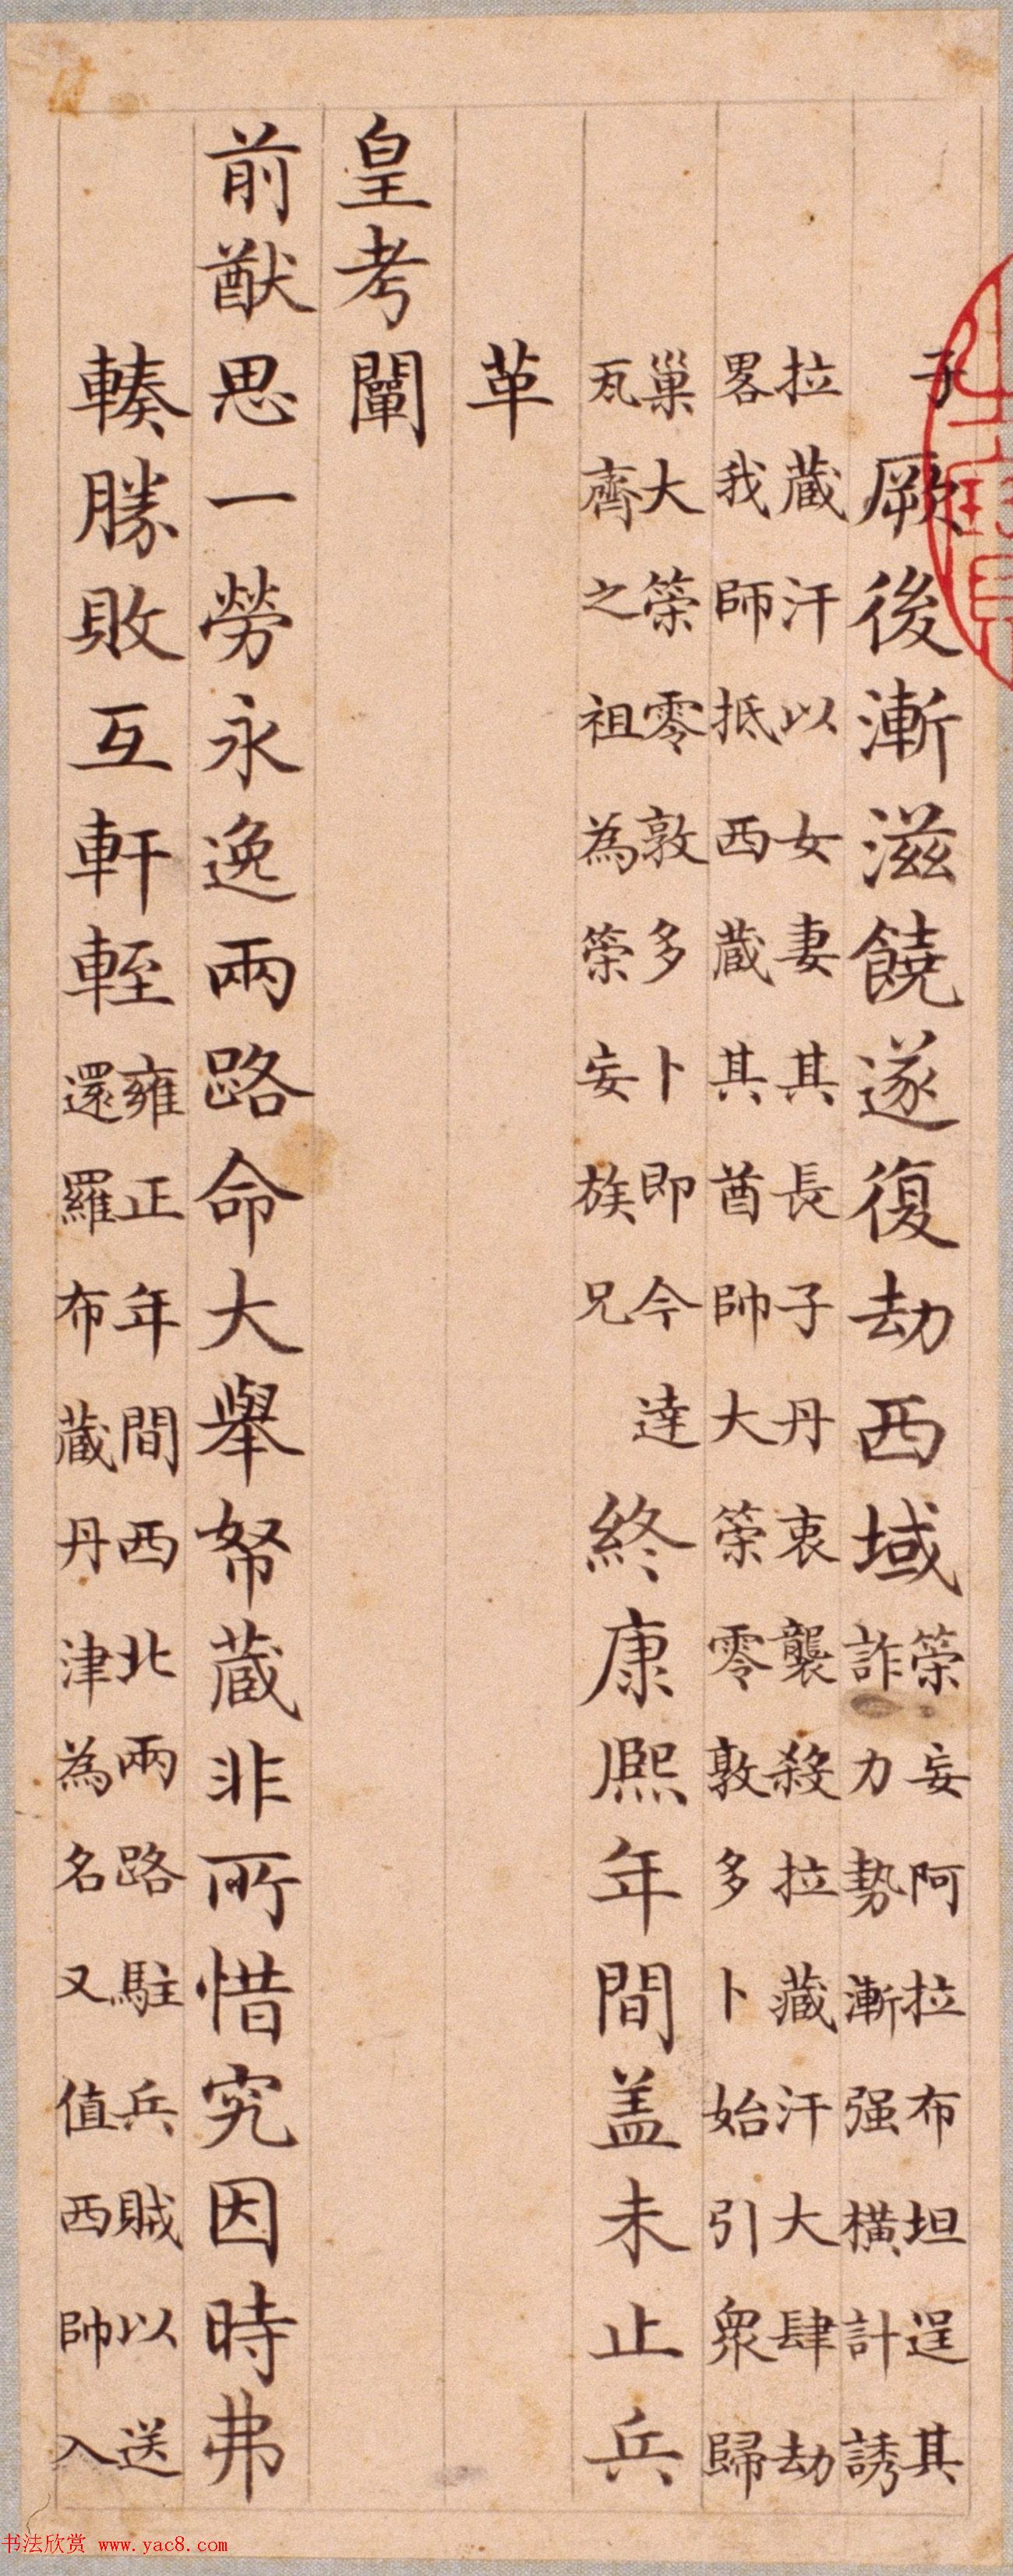 子
厥後漸滋饒遂復劫西域
策妄阿拉布坦逞其
詐力勢漸强橫計誘
拉藏汗以女妻其長子丹衷襲殺拉藏汗大肆劫
畧我師抵西藏其酋帥大策零敦多卜始引衆歸
巢大策零敦多卜即今達
瓦齊之祖為策妄族兄
終康熙年間盖未止兵
革
皇考闡
前猷思一勞永逸兩路命大舉帑藏非所惜究因時弗
輳勝敗互軒輊
雍正年間西北兩路駐兵賊以送
還羅布藏丹津為名又值西帥入
书法欣赏 www.yac8.com